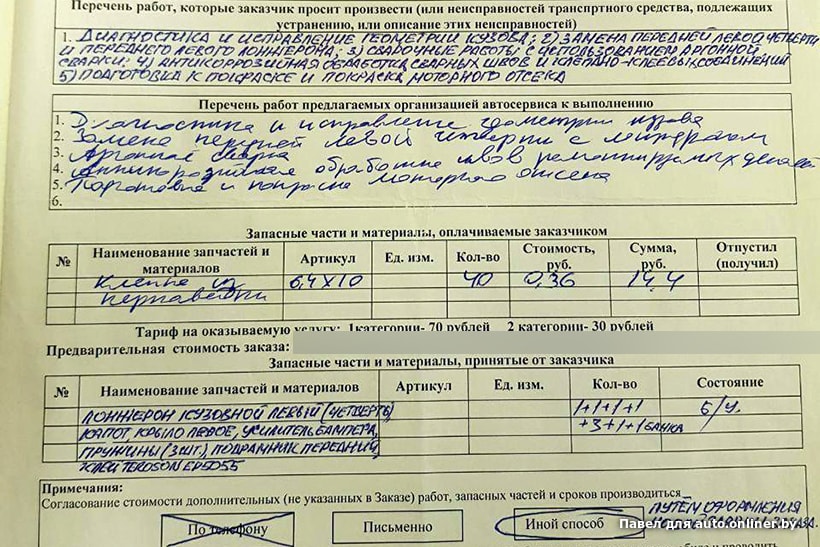 Перечень работ, которые заказчик просит произвести (или неисправностей транспртного средства, подлежащих
устранению, или описание этих неисправностей)
1. ДИАГНОСТИКА И ИСПРАВЛЕНИЕ ГЕОМЕТРИИ КУЗОВА; 2) ЗАМЕНА ПЕРЕДНЕЙ ЛЕВОЙ ЧЕТВЕРТИ
И ПЕРЕДНЕГО ЛЕВОГО ЛОНЖЕРОНА; 3) СВАРОЧНЫЕ РАБОТЫ С ИСПОЛЬЗОВАНИЕМ АРГОННОЙ
СВАРКИ; 4) АНТИКОРРОЗИЙНАЯ ОБРАБОТКА СВАРНЫХ ШВОВ И КЛЕПАНО-КЛЕЕВЫХ СОЕДИНЕНИЙ
5) ПОДГОТОВКА К ПОКРАСКЕ И ПОКРАСКА МОТОРНОГО ОТСЕКА
Перечень работ предлагаемых организацией автосервиса к выполнению
1. Диагностика и исправление геометрии кузова
2. Замена передней левой четверти с
3. Аргонная сварка
4. Антикорозийная обработка швов ремонтируемых деталей
5. Подготовка и покраска моторного отсека
6.
Запасные части и материалы, оплачиваемые заказчиком
№ Наименование запчастей и материалов Артикул Ед. изм. Кол-во Стоимость, руб. Сумма, руб. Отпустил (получил)
Клепка из 6,4х10 40 0,36 14,4
нержавейки
Тариф на оказываемую услугу: 1категории- 70 рублей 2 категории- 30 рублей
Предварительная стоимость заказа:
Запасные части и материалы, принятые от заказчика
№ Наименование запчастей и материалов Артикул Ед. изм. Кол-во Состояние
ЛОНЖЕРОН КУЗОВНОЙ ЛЕВЫЙ (ЧЕТВЕРТЬ) 1+1+1+1 Б/У.
КАПОТ, КРЫЛО ЛЕВОЕ, УСИЛИТЕЛЬ БАМПЕРА, +3+1+1 БАНКА
ПРУЖИНЫ (3 ШТ.), ПОДРАМНИК ПЕРЕДНИЙ,
КЛЕЙ TEROSON EP5055
Примечания:
Согласование стоимости дополнительных (не указанных в Заказе) работ, запасных частей и сроков производиться
ПУТЕМ ОФОРМЛЕНИЯ
По телефону Письменно Иной способ
Павел для auto.onliner.by